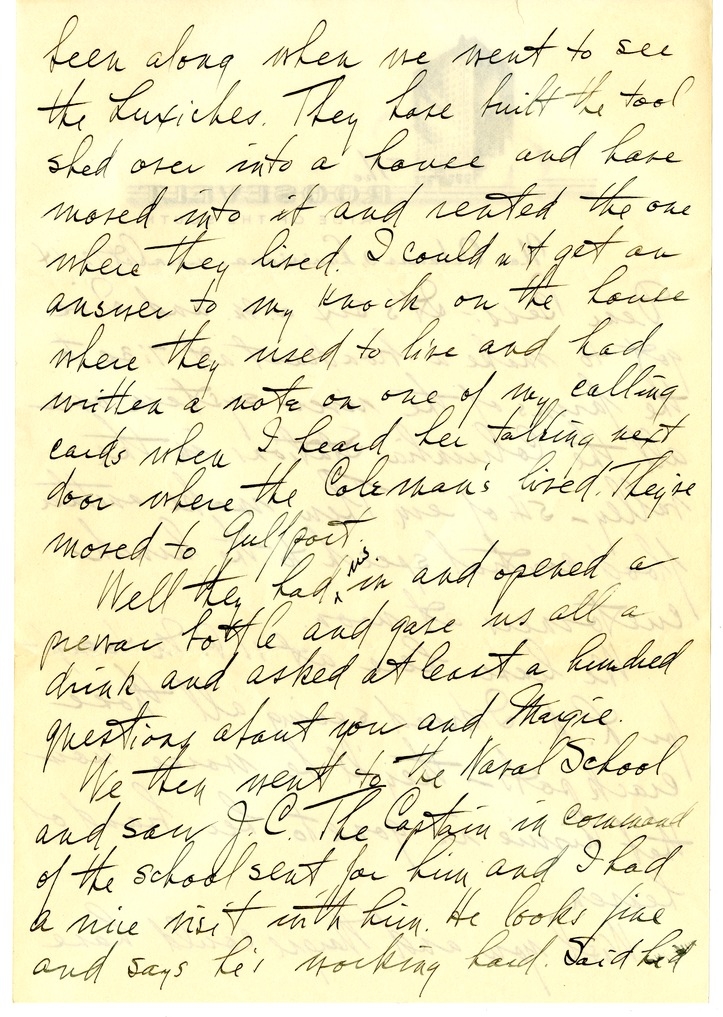 been along when we went to see
the Luxiches. They have built the tool
shed over into a house and have
moved into it and rented the one
where they lived. I couldn't get an
answer to my knock on the house
where they used to live and had
written a note on one of my calling
cards when I heard her talking next
door where the Coleman's lived. They've
moved to Gulfport.
Well they had us in and opened a
prewar bottle and gave us all a
drink and asked at least a hundred
questions about you and Margie.
We then went to the Naval School
and saw J.C. The Captain in command
of the school sent for him and I had
a nice visit with him. He looks fine
and says he's working hard. Said he'd
ROOSEVELT